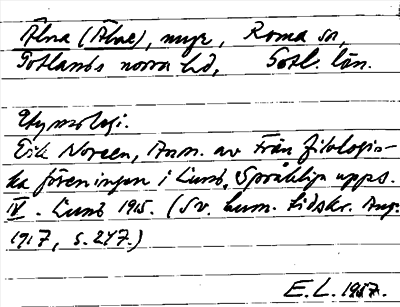 Älva (Älve), myr, Roma sn,
Gotlands norra hd, Gotl. län.
Etymologi.
Erik Noreen, Anm. av Från filologis-
ka föreningen i Lund, Språkliga upps.
IV. Lund 1915. (Sv. hum. tidskr. Aug.
1917, s. 247.)
E. L. 1957.